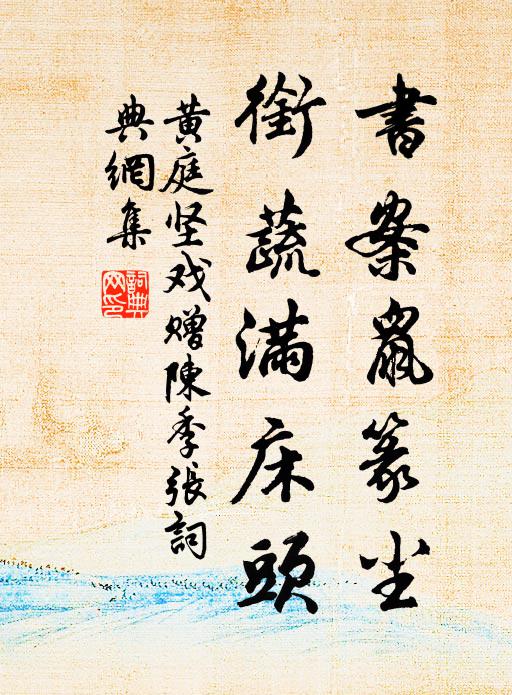 書案鼠篆尘
銜蔬满床頭
黄庭坚戏赠陳季張詞
典網集
詞典
网印